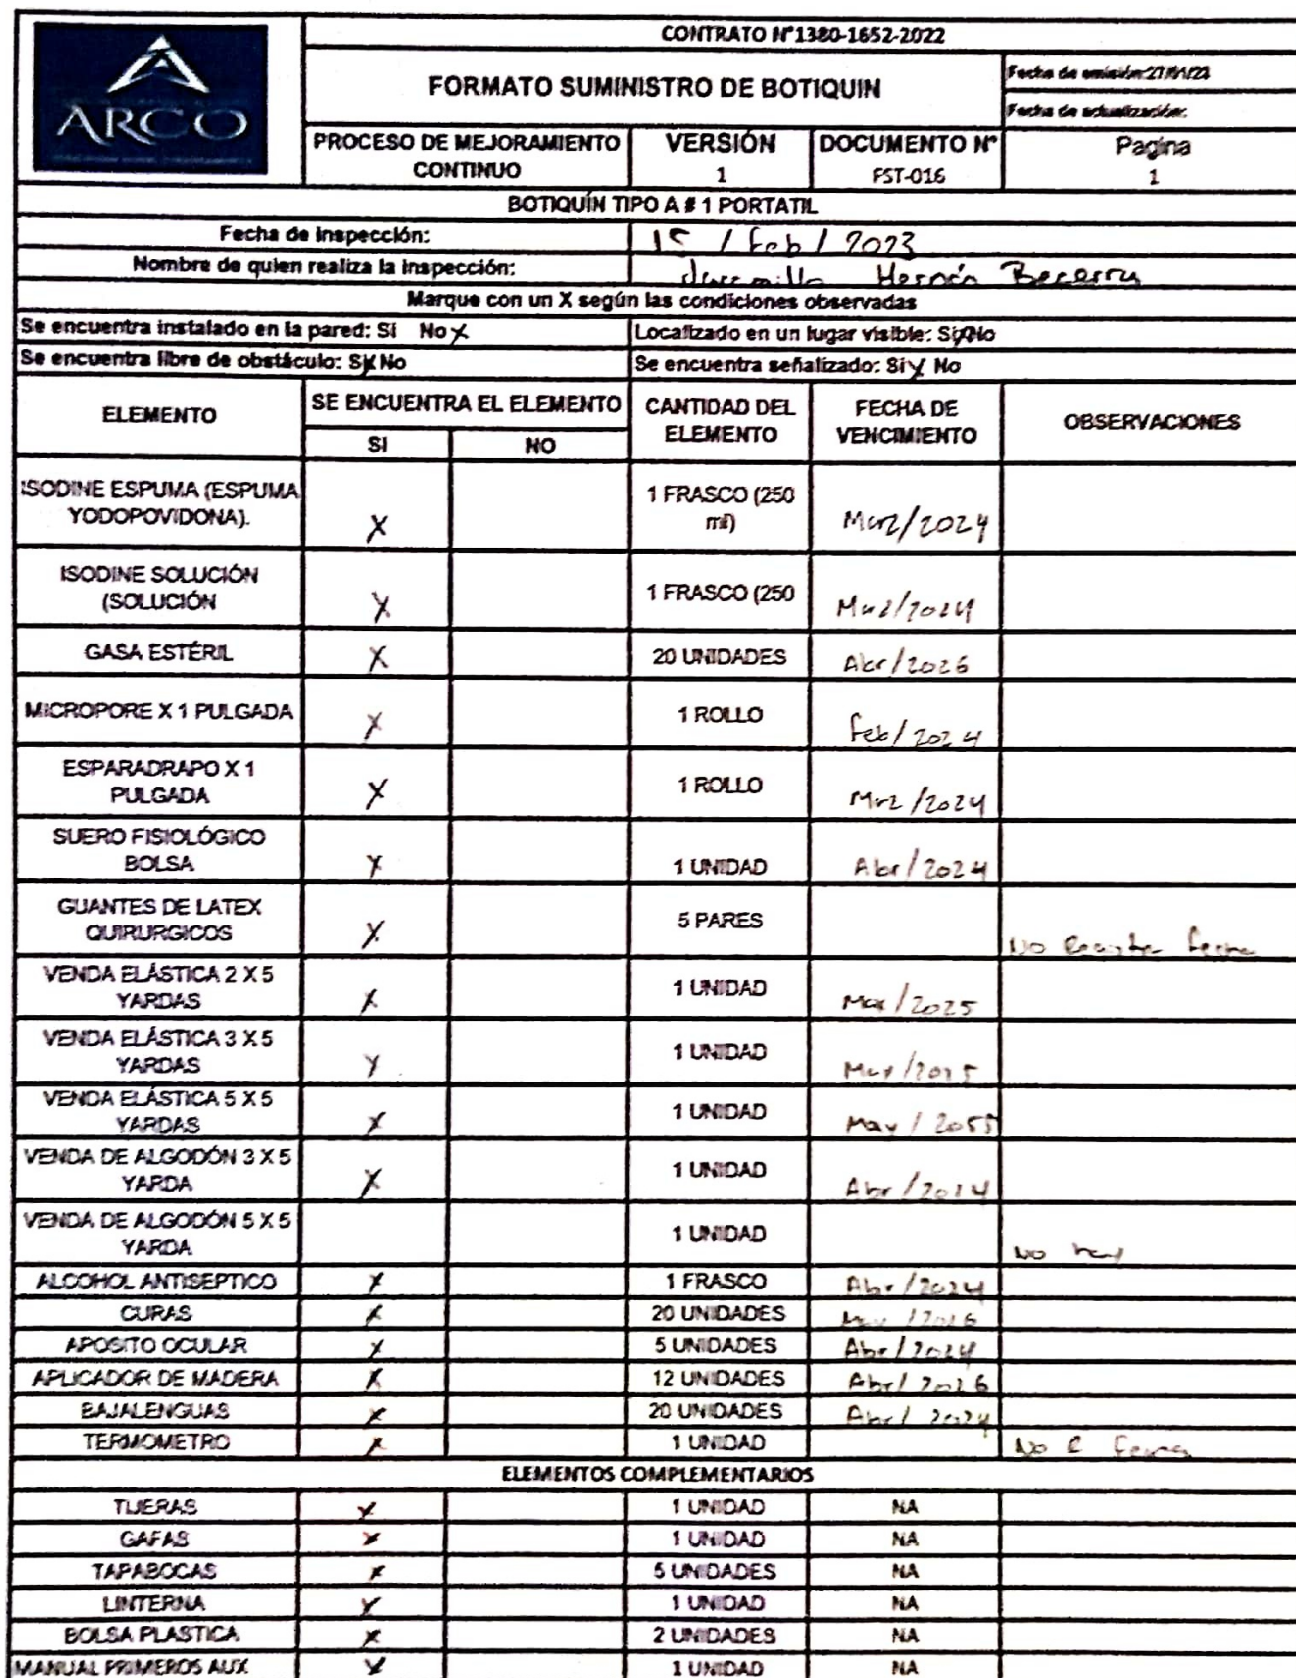 CONTRATO N°1380-1652-2022
ARCO
FORMATO SUMINISTRO DE BOTIQUIN
Fecha de emisión:27/01/23
Fecha de actualización:
PROCESO DE MEJORAMIENTO CONTINUO
VERSIÓN 1
DOCUMENTO N° FST-016
Pagina 1
BOTIQUÍN TIPO A # 1 PORTATIL
Fecha de inspección: 15 / Feb / 2023
Nombre de quien realiza la inspección: Hernán Becerra
Marque con un X según las condiciones observadas
Se encuentra instalado en la pared: Si No X Localizado en un lugar visible: Si X No
Se encuentra libre de obstáculo: Si X No Se encuentra señalizado: Si X No
ELEMENTO SE ENCUENTRA EL ELEMENTO CANTIDAD DEL ELEMENTO FECHA DE VENCIMIENTO OBSERVACIONES
SI NO
ISODINE ESPUMA (ESPUMA YODOPOVIDONA). X 1 FRASCO (250 ml) Marz/2024
ISODINE SOLUCIÓN (SOLUCIÓN X 1 FRASCO (250 Marz/2024
GASA ESTÉRIL X 20 UNIDADES Abr/2026
MICROPORE X 1 PULGADA X 1 ROLLO Feb/2024
ESPARADRAPO X 1 PULGADA X 1 ROLLO Mrz/2024
SUERO FISIOLÓGICO BOLSA X 1 UNIDAD Abr/2024
GUANTES DE LATEX QUIRURGICOS X 5 PARES No Fecha
VENDA ELÁSTICA 2 X 5 YARDAS X 1 UNIDAD /2025
VENDA ELÁSTICA 3 X 5 YARDAS X 1 UNIDAD /2025
VENDA ELÁSTICA 5 X 5 YARDAS X 1 UNIDAD May / 2055
VENDA DE ALGODÓN 3 X 5 YARDA X 1 UNIDAD Abr/2024
VENDA DE ALGODÓN 5 X 5 YARDA 1 UNIDAD No hay
ALCOHOL ANTISEPTICO X 1 FRASCO Abr/2024
CURAS X 20 UNIDADES /2026
APOSITO OCULAR X 5 UNIDADES Abr/2024
APLICADOR DE MADERA X 12 UNIDADES Abr/2026
BAJALENGUAS X 20 UNIDADES Abr/2024
TERMOMETRO X 1 UNIDAD No R Fecha
ELEMENTOS COMPLEMENTARIOS
TIJERAS X 1 UNIDAD NA
GAFAS X 1 UNIDAD NA
TAPABOCAS X 5 UNIDADES NA
LINTERNA X 1 UNIDAD NA
BOLSA PLASTICA X 2 UNIDADES NA
MANUAL PRIMEROS AUX X 1 UNIDAD NA